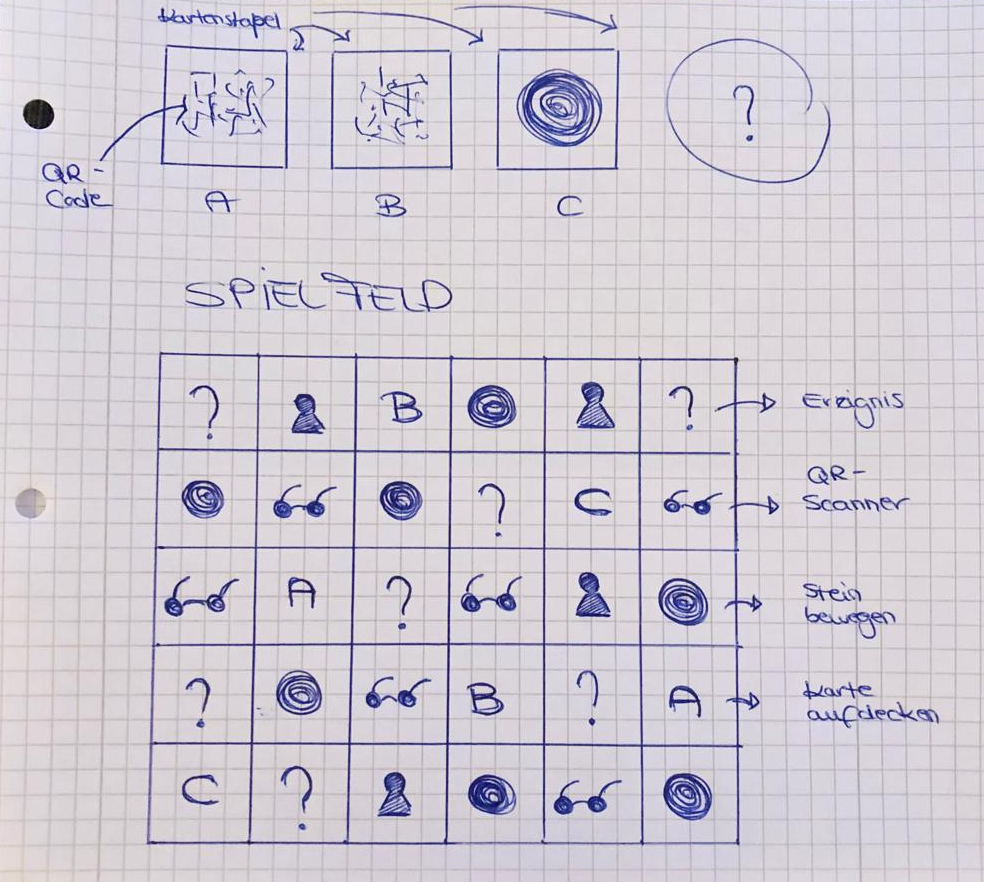 Kartenstapel
?
QR-
Code
A B C
SPIELFELD
? B ? Ereignis
? C QR-
Scanner
A ? Stein
bewegen
? B ? A Karte
aufdecken
C ?